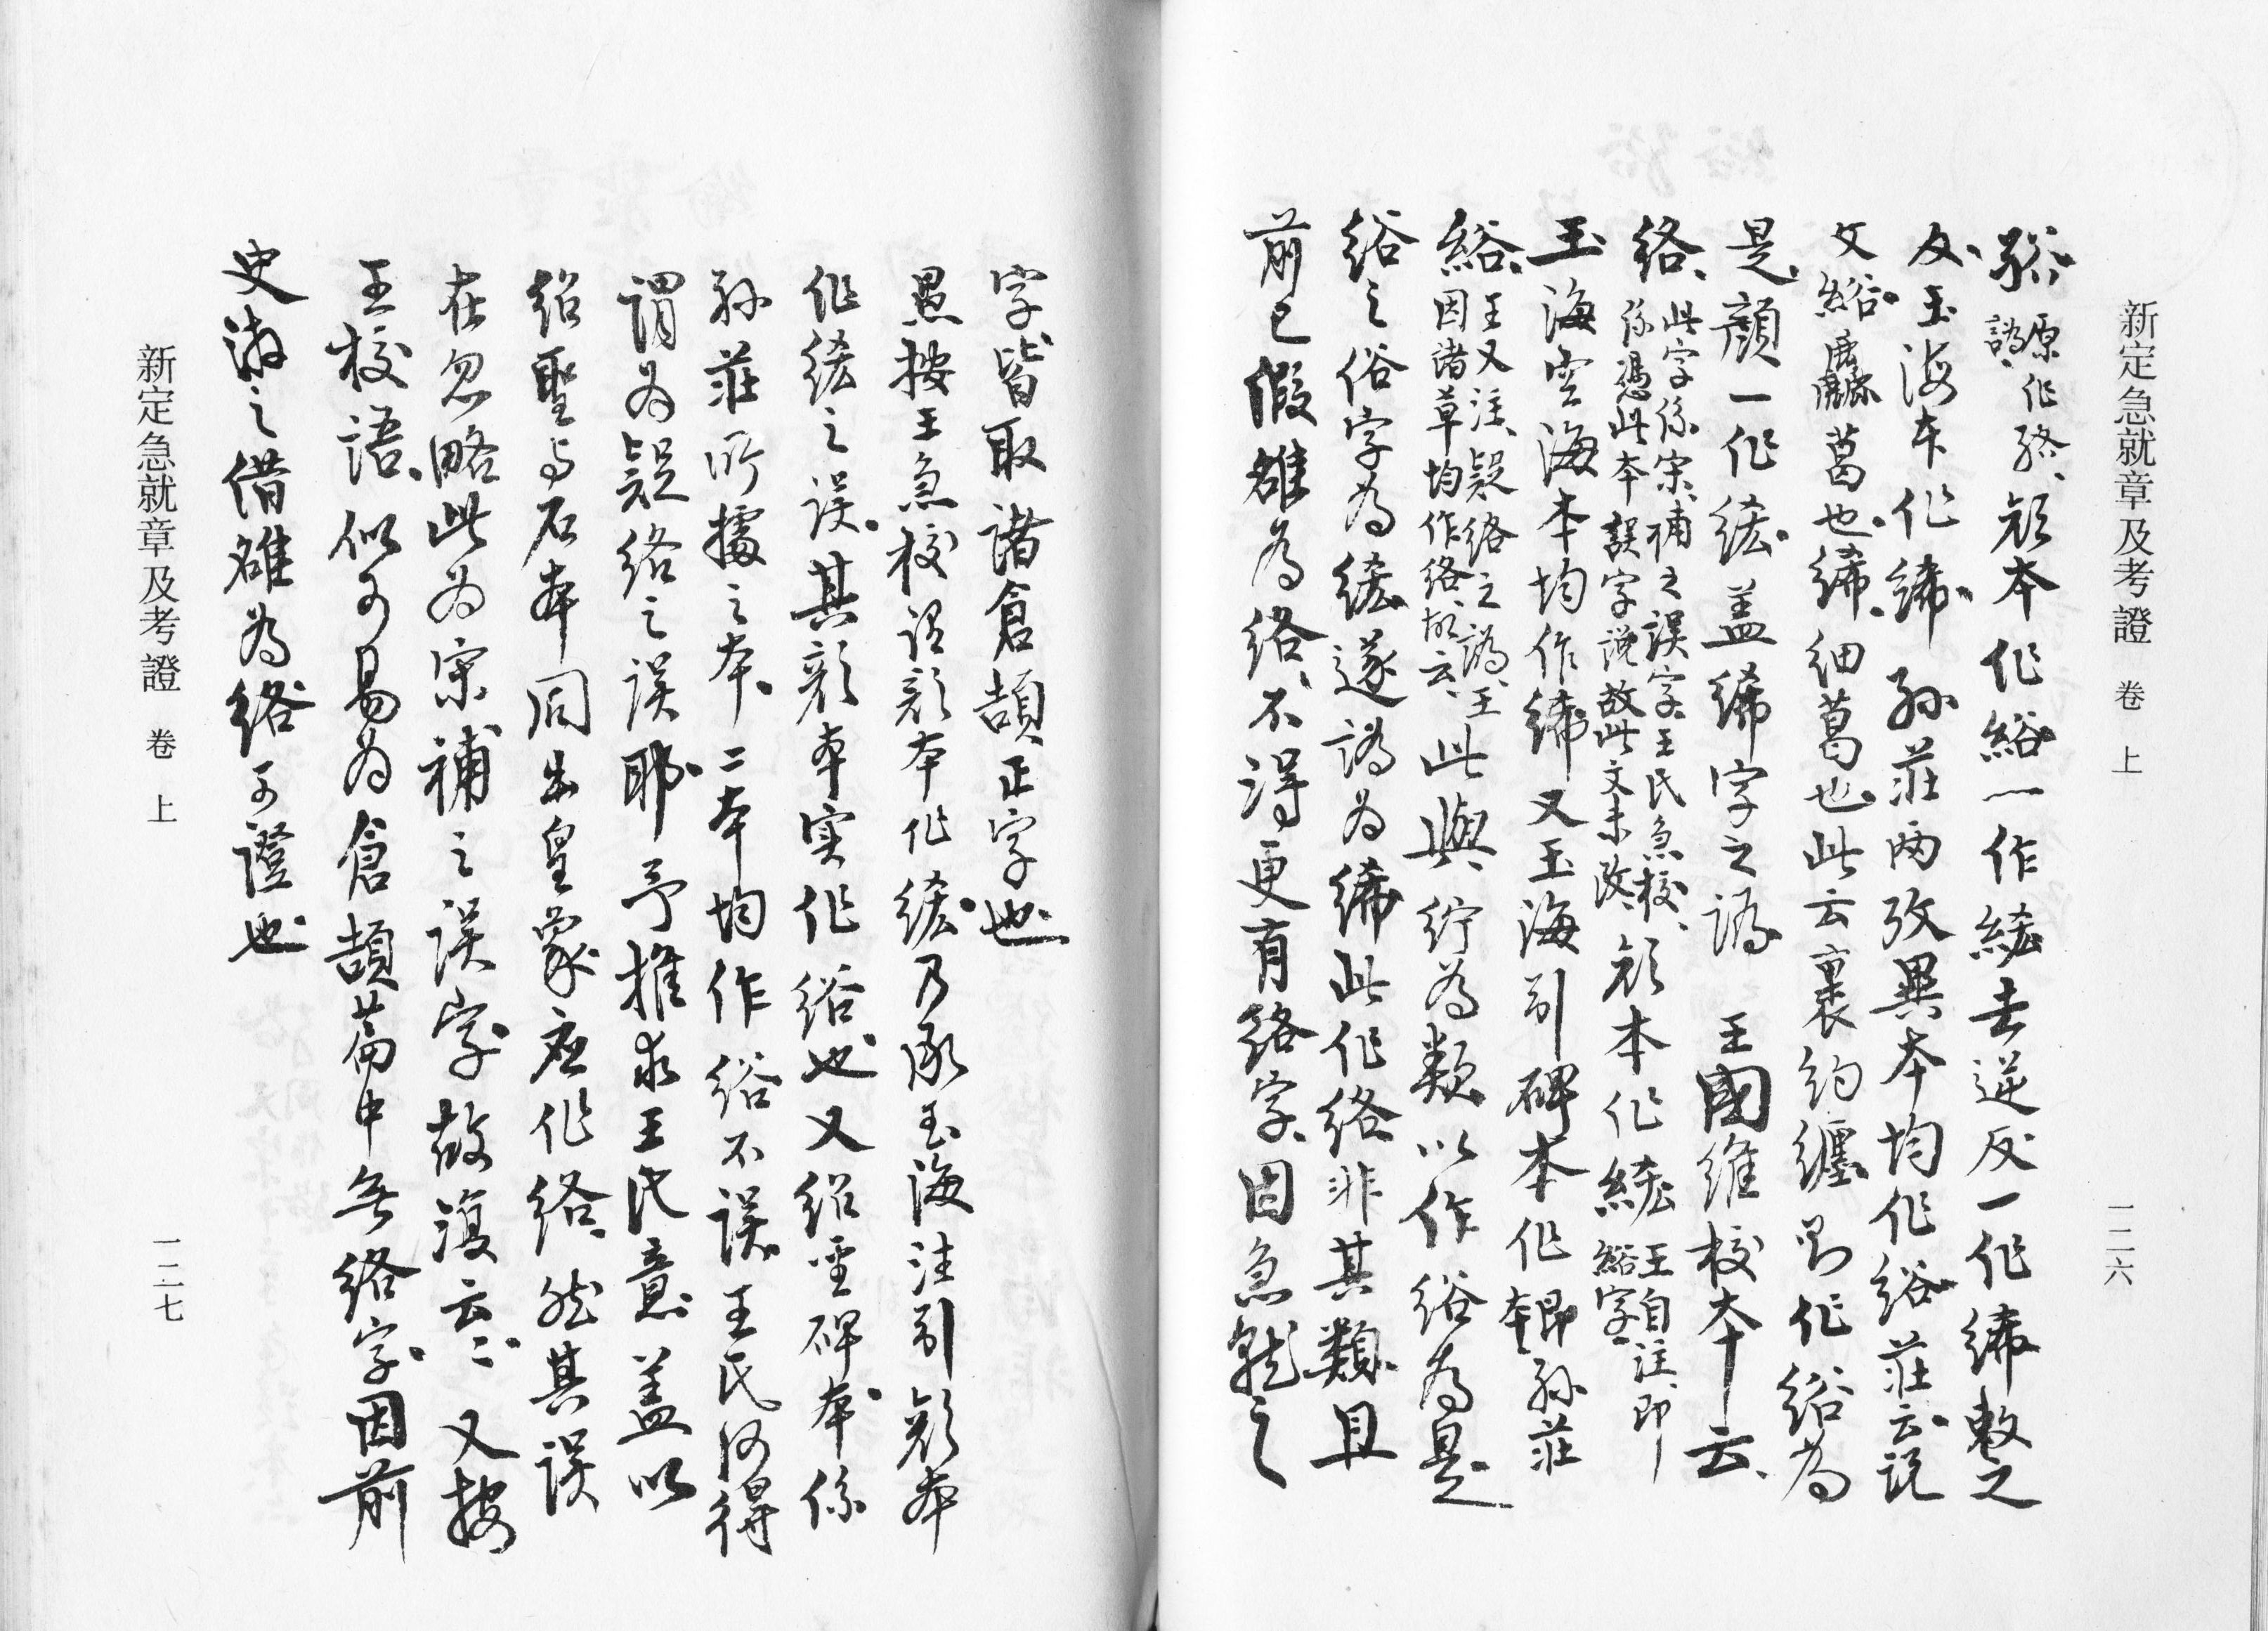 新定急就章及考證　卷上　一二六
綌、原作終、譌、顏本作綌一作綊去逆反一作絺敕之
反、玉海本作絺、孫莊兩攷異本均作綌、莊云、說
文綌、麤葛也、絺、細葛也、此云裹約纏、則作綌為
是、顏一作綊、盖絺字之譌　王國維校本云、
絡、此字係宋補之誤字、王氏急校、係憑此本誤字說故此文未改、顏本作綊王自注、即綌字、
玉海空海本均作絺又玉海引碑本作即孫莊本
綌、王又注、疑絡之譌、王因諸草均作絡、故云、此與紵為類以作綌為是
綌之俗字為綊遂譌為絺此作絡非其類且
前已假雒為絡、不得更有絡字、因急就之
字皆取諸倉頡正字也
愚按王急校謂顏本作綊乃承玉海注引顏本
作綊之誤、其顏本实作綌也又紹聖碑本係
孫莊所據之本、二本均作綌不誤王氏何得
謂为疑絡之誤耶予推求王氏意盖以
紹聖与石本同出皇象应作絡、然其誤
在忽略此为宋補之誤字故復云云又按
王校語、似可易为倉頡篇中無絡字、因前
史游之借雒為絡可證也
新定急就章及考證　卷上　一二七